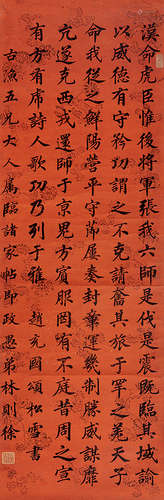 漢命虎臣惟後將軍張我六師是伐是震既臨其域諭
以威德有守矜功謂之不克請奮其旅于罕之羌天子
命我從之鮮陽營平守節屢奏封章運幾制勝威謀靡
亢遂克西戎還師于京鬼方賓服罔有不庭昔周之宣
有方有虎詩人歌功乃列于雅 趙充國頌松雪書
古漁五兄大人屬臨諸家帖即政愚弟林則徐